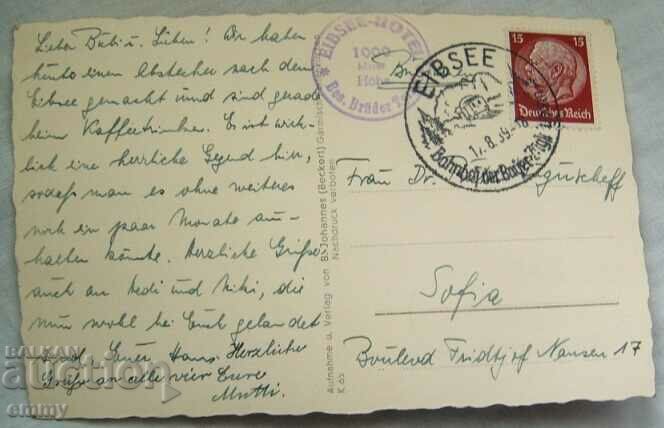 Lieber Bubi u. Lieben! Wir haben
heute einen Abstecher nach dem
Eibsee gemacht und sind gerade
beim Kaffeetrinken. Es ist wirk-
lich eine herrliche Gegend hier,
sodass man es ohne weiteres
noch ein paar Monate aus-
halten könnte. Herzliche Grüße
auch an Hedi und Niki, die
nun wohl bei Euch gelandet
sind. Euer Hans. Herzliche
Grüße an alle vier Eure
Mutti.
EIBSEE-HOTEL
1000
Meter
Höhe
Bes. Brüder
EIBSEE
17.8.39.-18
Bahnhof der Bayer. Zugspitzbahn
15 15
Deutsches Reich
Aufnahme u. Verlag von B. Johannes (Beckert) Garmisch
Nachdruck verboten
K 63
Frau Dr.
Sofia
Boulevd Fridtjof Nansen 17
BALKAN
auction
emmy